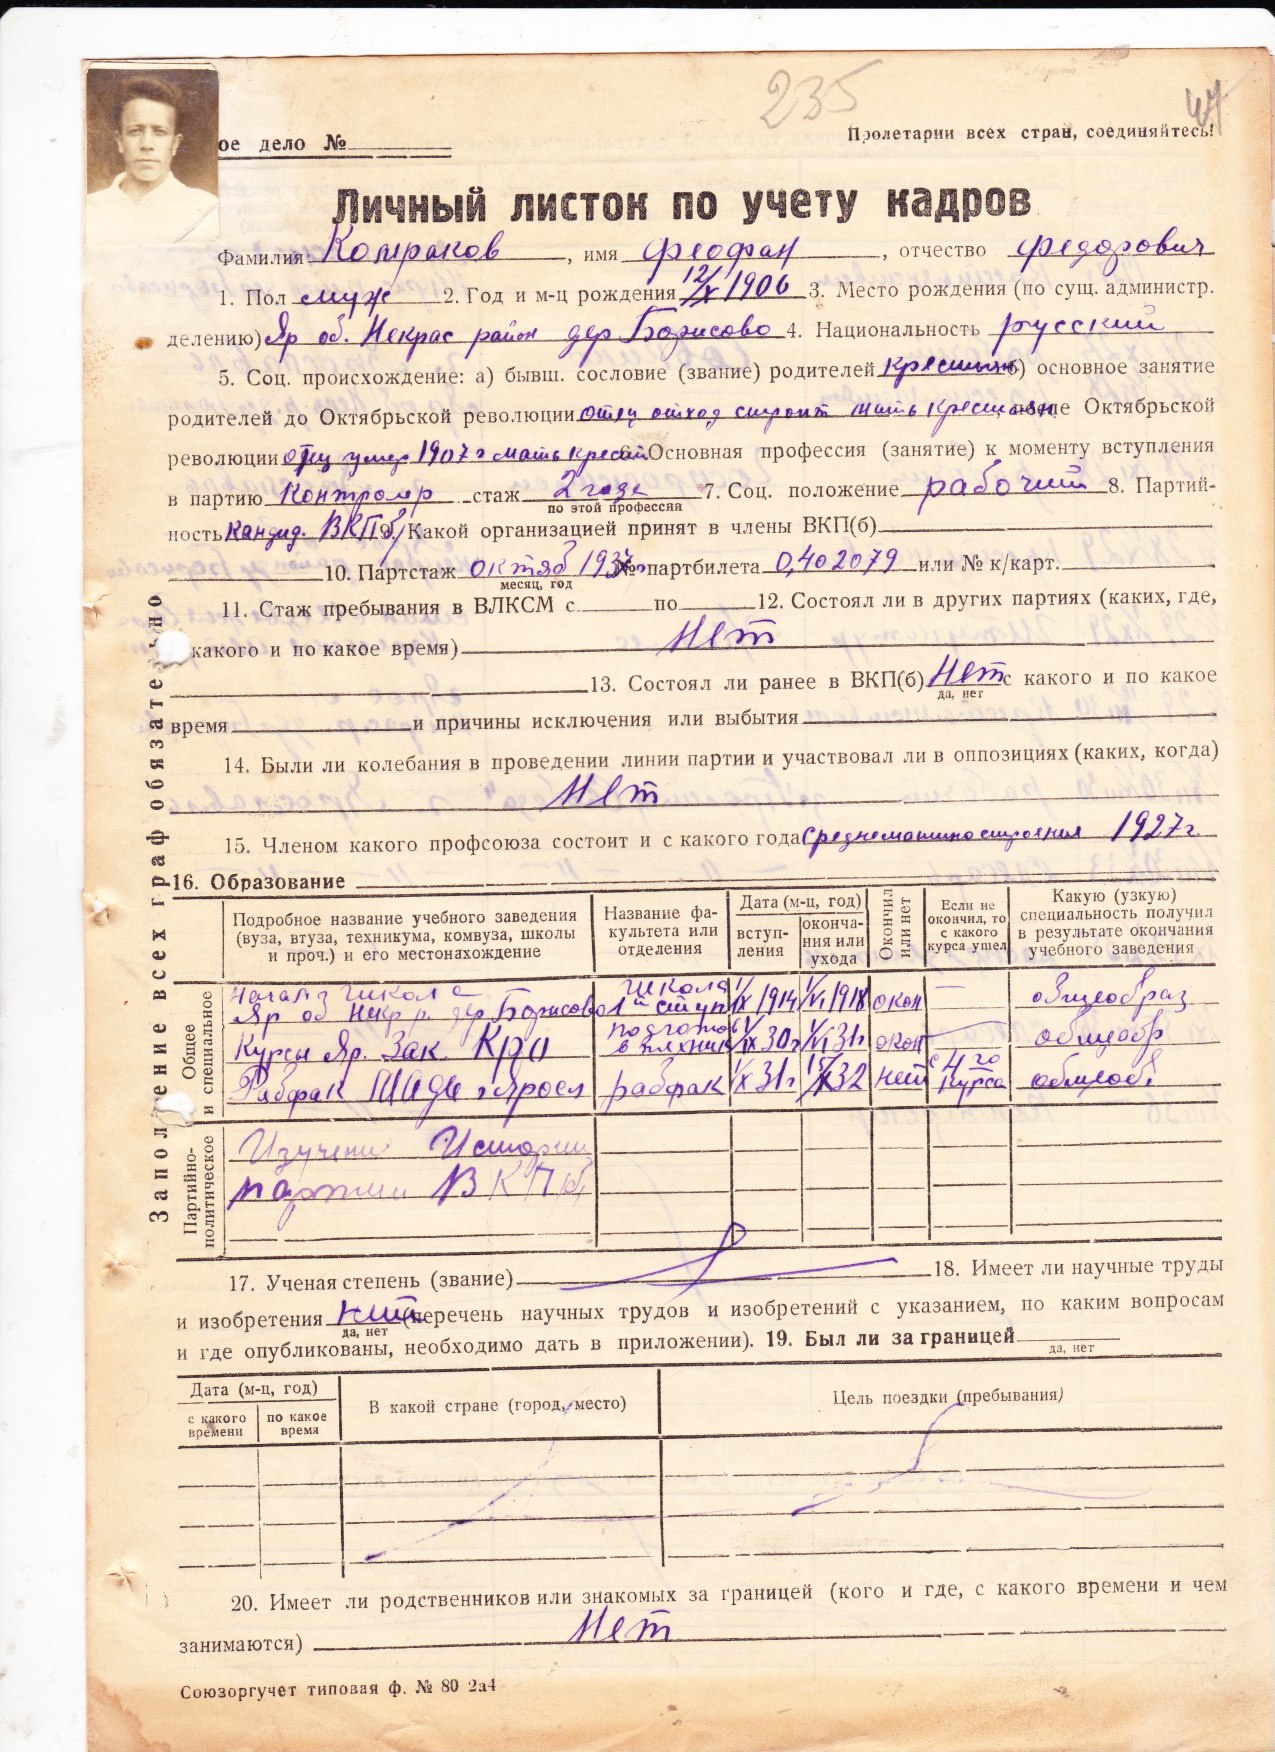 235
47
ое дело №
Пролетарии всех стран, соединяйтесь!
Личный листок по учету кадров
Фамилия Котраков, имя Феофан, отчество Федорович
1. Пол муж 2. Год и м-ц рождения 12/X 1906 3. Место рождения (по сущ. администр.
делению) Яр об. Некрас район дер Борисово 4. Национальность русский
5. Соц. происхождение: а) бывш. сословие (звание) родителей крестьян б) основное занятие
родителей до Октябрьской революции отец отход строит мать крестьян, после Октябрьской
революции отец умер 1907 г мать крестьян 6. Основная профессия (занятие) к моменту вступления
в партию Контролер стаж 2 года 7. Соц. положение рабочий 8. Партий-
по этой профессии
ность кандид. ВКП(б) 9. Какой организацией принят в члены ВКП(б)
10. Партстаж октяб 193 № партбилета 0,402079 или № к/карт.
месяц, год
11. Стаж пребывания в ВЛКСМ с по 12. Состоял ли в других партиях (каких, где,
какого и по какое время) Нет
13. Состоял ли ранее в ВКП(б) Нет с какого и по какое
да, нет
время и причины исключения или выбытия
14. Были ли колебания в проведении линии партии и участвовал ли в оппозициях (каких, когда)
Нет
15. Членом какого профсоюза состоит и с какого года Среднемашиностроения 1927 г.
16. Образование
Подробное название учебного заведения (вуза, втуза, техникума, комвуза, школы и проч.) и его местонахождение
Название факультета или отделения
Дата (м-ц, год)
вступ-ления
оконча-ния или ухода
Окончил или нет
Если не окончил, то с какого курса ушел
Какую (узкую) специальность получил в результате окончания учебного заведения
Общее и специальное
школа
Яр об Некр р. дер Борисово 1й ступ 1/IX 1914 1/VI 1918 окон — общеобраз
Курсы Яр. Зак. Кро подготов в техник 1/IX 30 г 1/VI 31 г окон общеобр
Рабфак г Яросл рабфак 1/X 31 г 32 нет с 4 го курса общеоб
Партийно-политическое
Изучени Истории
партии ВКП(б)
17. Ученая степень (звание) 18. Имеет ли научные труды
и изобретения нет (перечень научных трудов и изобретений с указанием, по каким вопросам
да, нет
и где опубликованы, необходимо дать в приложении). 19. Был ли за границей
да, нет
Дата (м-ц, год)
с какого времени
по какое время
В какой стране (город, место)
Цель поездки (пребывания)
20. Имеет ли родственников или знакомых за границей (кого и где, с какого времени и чем
занимаются) Нет
Союзоргучет типовая ф. № 80 2а4
Заполнение всех граф обязательно